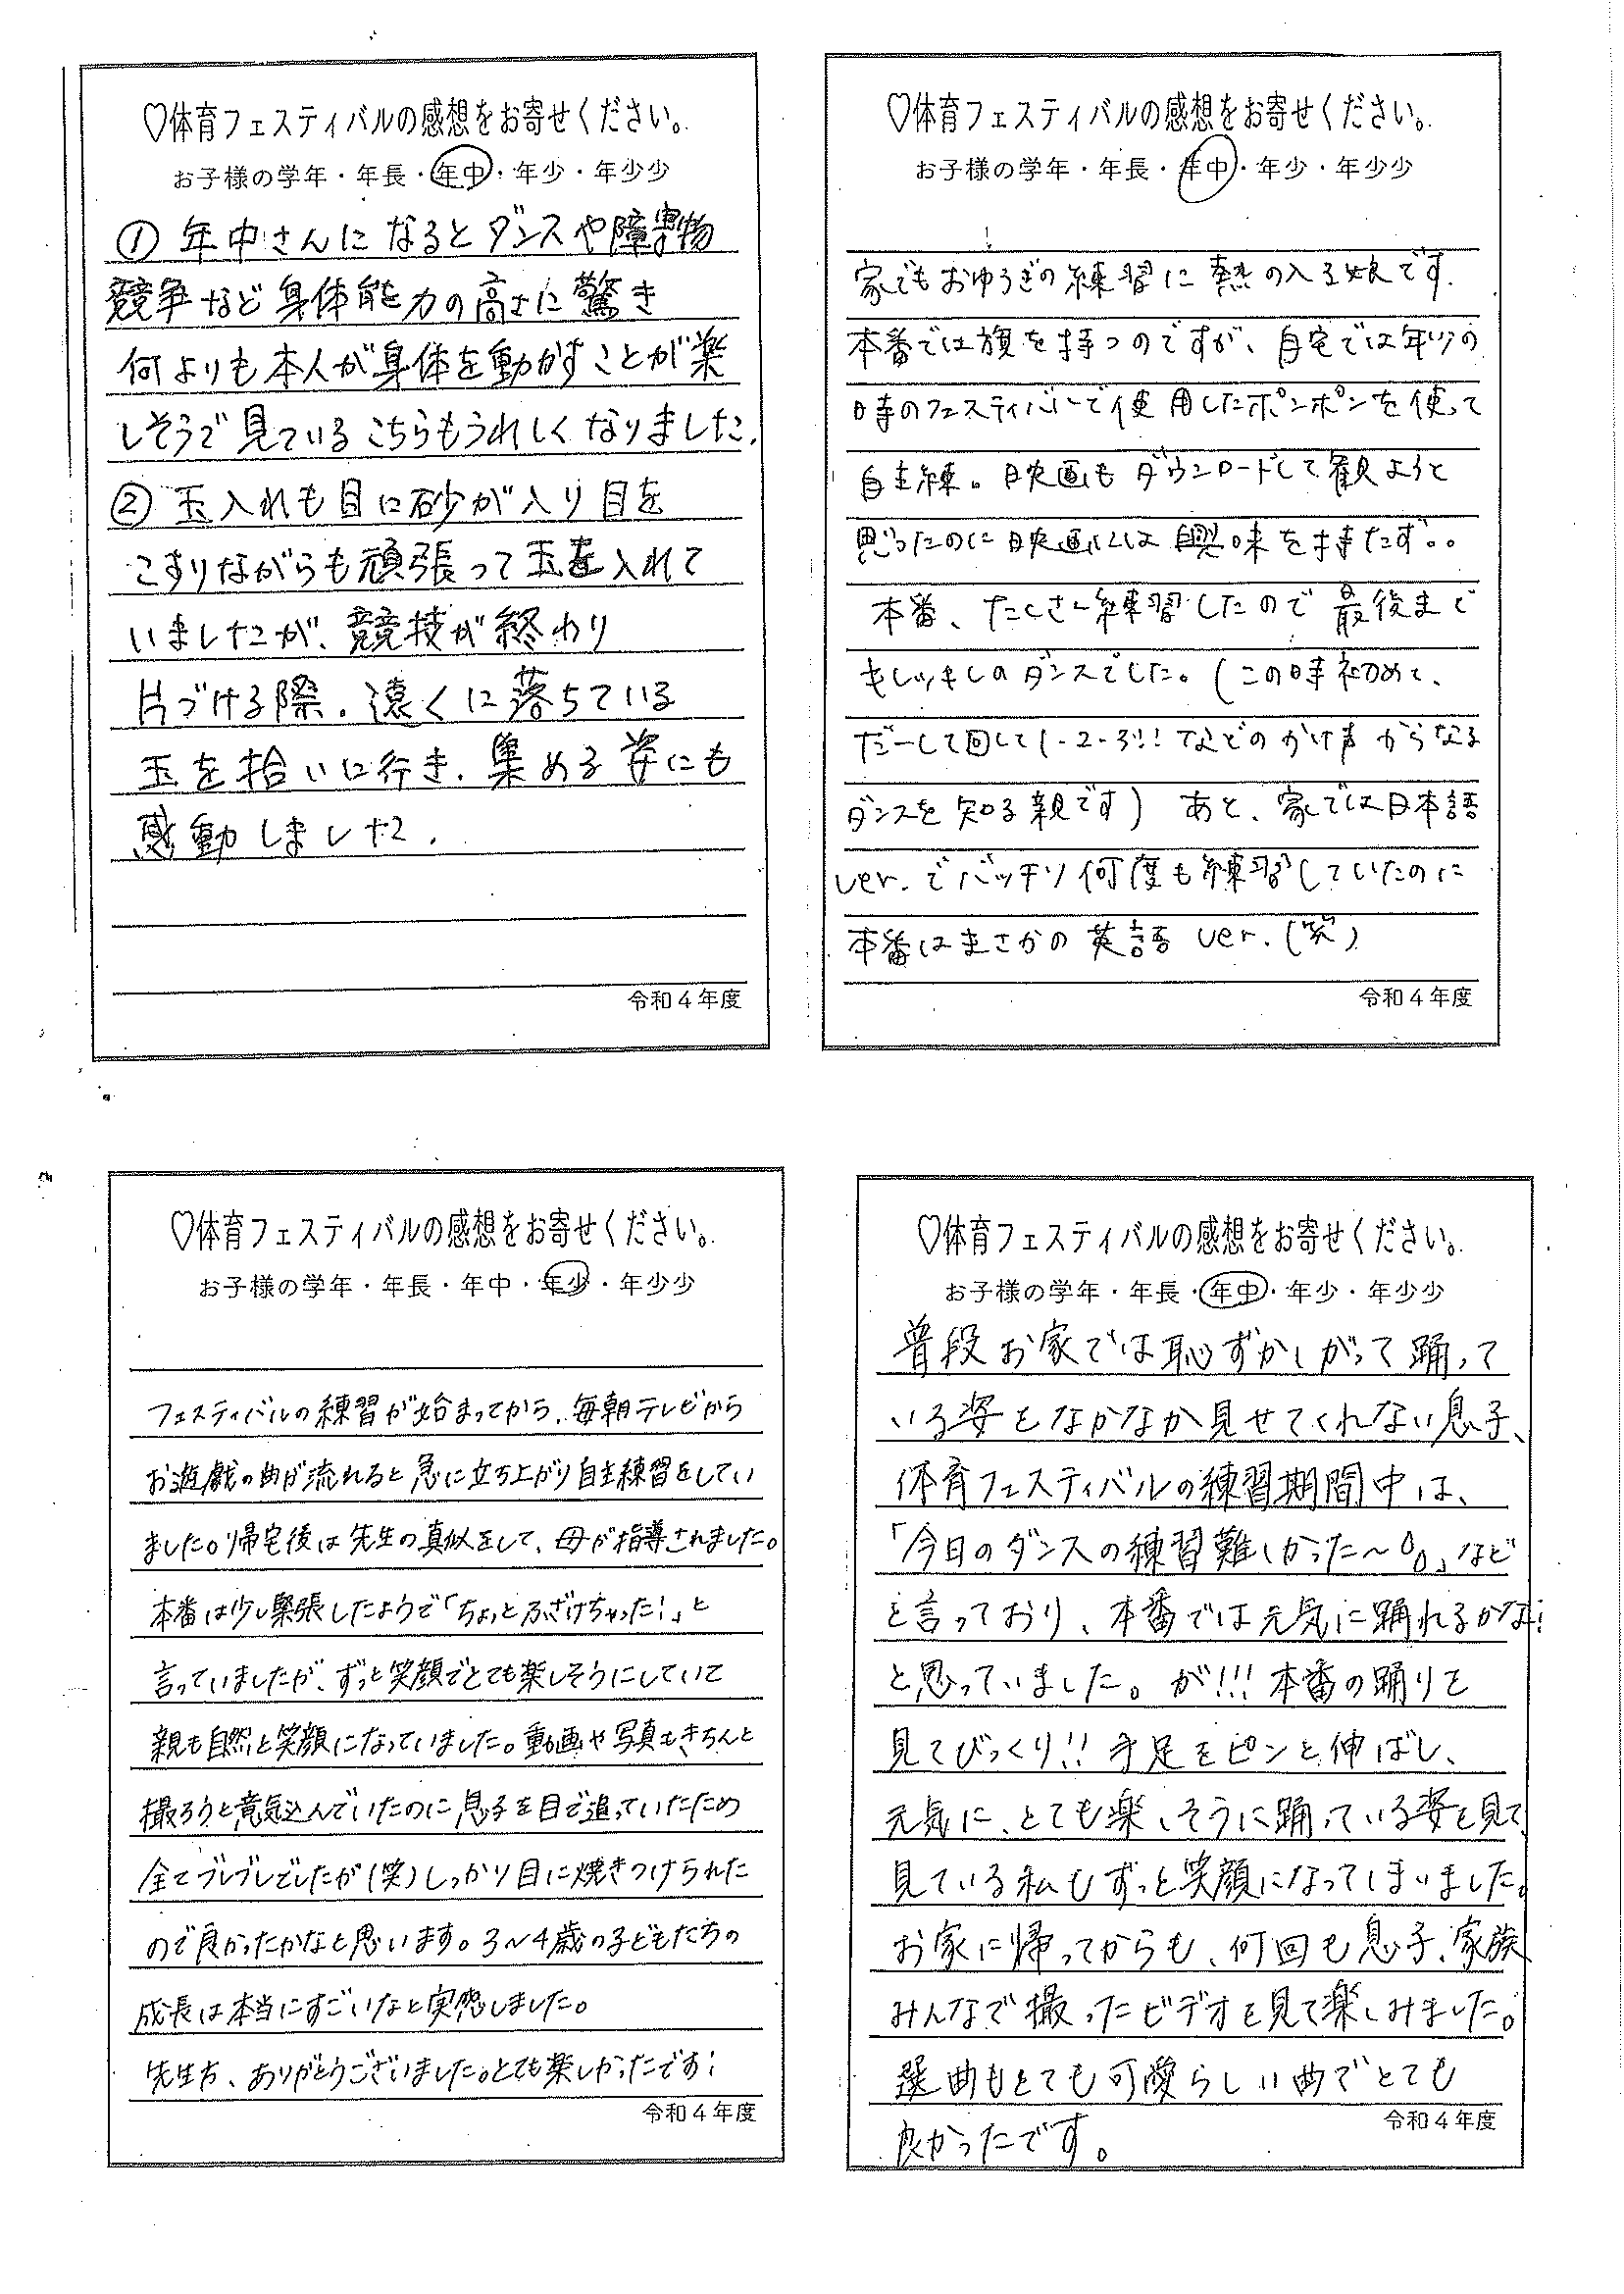 ♡体育フェスティバルの感想をお寄せください。
お子様の学年・年長・年中・年少・年少少
① 年中さんになるとダンスや障害物
競争など身体能力の高さに驚き
何よりも本人が身体を動かすことが楽
しそうで見ているこちらもうれしくなりました.
② 玉入れも目に砂が入り目を
こすりながらも頑張って玉を入れて
いましたが、競技が終わり
片づける際、遠くに落ちている
玉を拾いに行き、集める姿にも
感動しました.
令和４年度
♡体育フェスティバルの感想をお寄せください。
お子様の学年・年長・年中・年少・年少少
家でもおゆうぎの練習に熱の入る娘です.
本番では旗を持つのですが、自宅では年少の
時のフェスティバルで使用したポンポンを使って
自主練。映画もダウンロードして観ようと
思ったのに映画には興味を持たず..
本番、たくさん練習したので最後まで
キレッキレのダンスでした。(この時初めて、
だーして回して1-2-3!! などのかけ声からなる
ダンスを知る親です) あと、家では日本語
ver.でバッチリ何度も練習していたのに
本番はまさかの英語 ver.(笑)
令和４年度
♡体育フェスティバルの感想をお寄せください。
お子様の学年・年長・年中・年少・年少少
フェスティバルの練習が始まってから、毎朝テレビから
お遊戯の曲が流れると急に立ち上がり自主練習をしてい
ました。帰宅後は先生の真似をして、母が指導されました。
本番は少し緊張したようで「ちょっとふざけちゃった!」と
言っていましたが、ずっと笑顔でとても楽しそうにしていて
親も自然と笑顔になっていました。動画や写真もきちんと
撮ろうと意気込んでいたのに息子を目で追っていたため
全てブレブレでしたが(笑)しっかり目に焼きつけられた
ので良かったかなと思います。3〜4歳の子どもたちの
成長は本当にすごいなと実感しました。
先生方、ありがとうございました。とても楽しかったです!
令和４年度
♡体育フェスティバルの感想をお寄せください。
お子様の学年・年長・年中・年少・年少少
普段お家では恥ずかしがって踊って
いる姿をなかなか見せてくれない息子、
体育フェスティバルの練習期間中は、
「今日のダンスの練習難しかった〜。」など
と言っており、本番では元気に踊れるかな!
と思っていました。が!!! 本番の踊りを
見てびっくり!! 手足をピンと伸ばし、
元気に、とても楽しそうに踊っている姿を見て
見ている私もずっと笑顔になってしまいました。
お家に帰ってからも、何回も息子、家族
みんなで撮ったビデオを見て楽しみました。
選曲もとても可愛らしい曲でとても
良かったです。
令和４年度